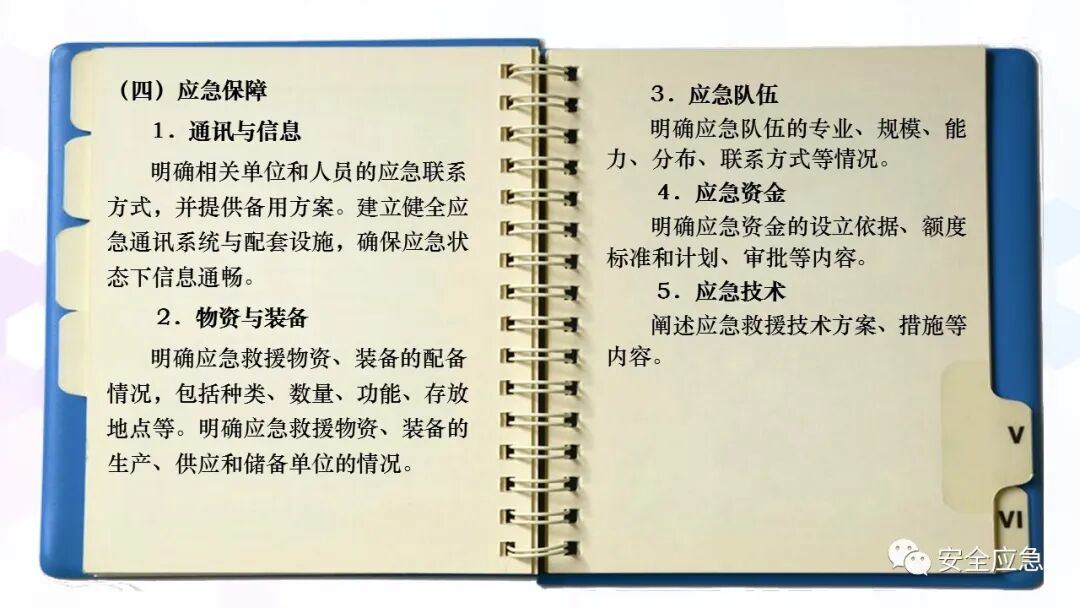 （四）应急保障
1．通讯与信息
明确相关单位和人员的应急联系
方式，并提供备用方案。建立健全应
急通讯系统与配套设施，确保应急状
态下信息通畅。
2．物资与装备
明确应急救援物资、装备的配备
情况，包括种类、数量、功能、存放
地点等。明确应急救援物资、装备的
生产、供应和储备单位的情况。
3．应急队伍
明确应急队伍的专业、规模、能
力、分布、联系方式等情况。
4．应急资金
明确应急资金的设立依据、额度
标准和计划、审批等内容。
5．应急技术
阐述应急救援技术方案、措施等
内容。
V
VI
安全应急